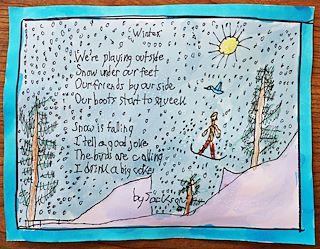 Winter
We're playing outside
Snow under our feet
Our friends by our side
Our boots start to squeek
Snow is falling
I tell a good joke
The birds are calling
I drink a big coke
by Jackson